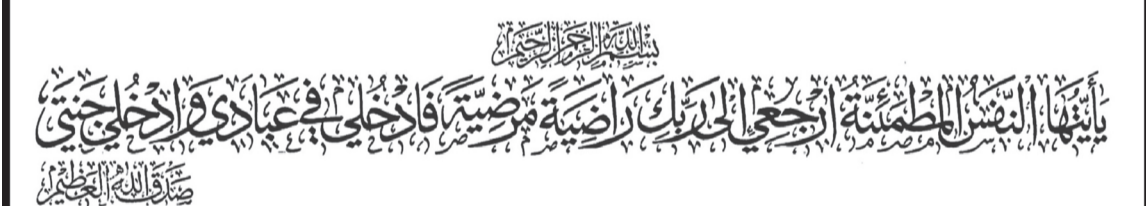 بسم الله الرحمن الرحيم
يَا أَيَّتُهَا النَّفْسُ الْمُطْمَئِنَّةُ ارْجِعِي إِلَى رَبِّكِ رَاضِيَةً مَرْضِيَّةً فَادْخُلِي فِي عِبَادِي وَادْخُلِي جَنَّتِي
صَدَقَ اللهُ الْعَظِيمُ